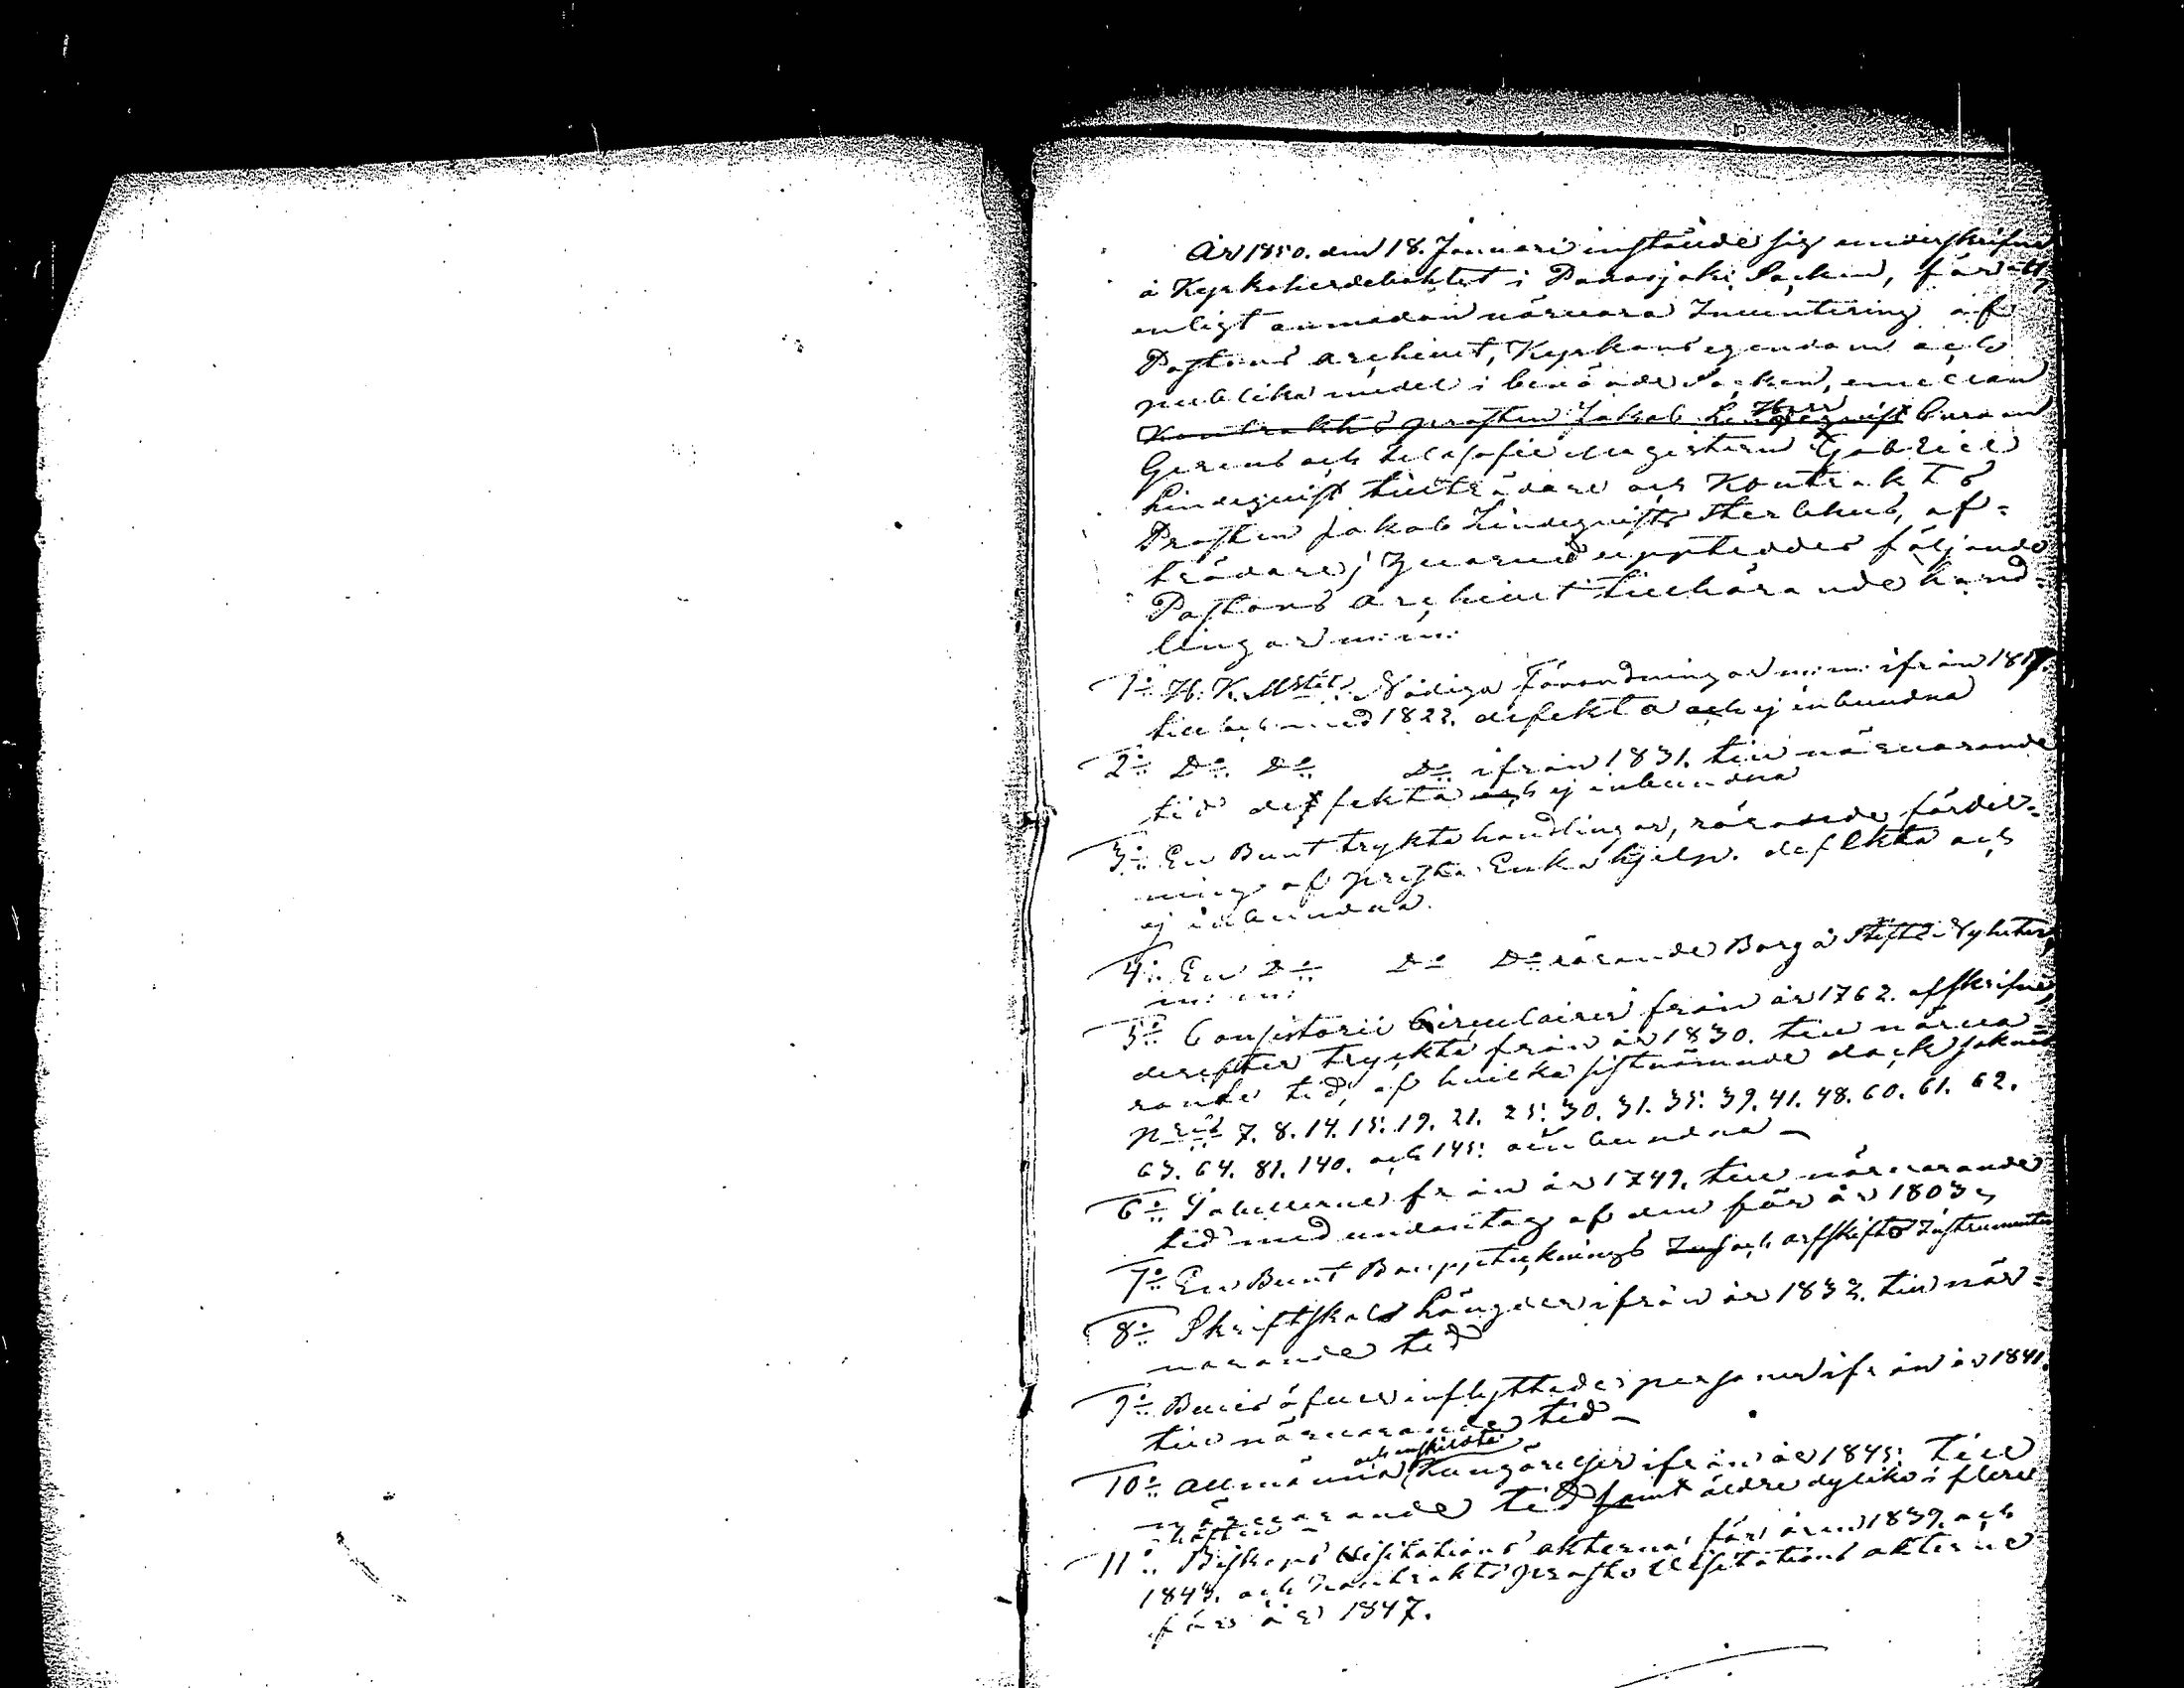 År 1850. den 18. Januari instälde sig underskrifne
å Kyrkoherdebohlet i Socken, för att
enligt anmodan närvara Inventering af
Pastors Archivet, Kyrkans egendom och
publika medel i Socken, emellan
Kontrakts prosten Jakob Lindeqvist Herr
och Filosofie Magistern Gabriel
Lindeqvist tillträdare och Kontrakts
Prosten Jakob Lindeqvists Sterbhus, af=
trädare; Hvarvid uppteddes följande
Pastors Archivet tillhörande hand=
lingar m: m:
1:o H. K. M:tets Nådiga Förordningar m: m: ifrån
till och med 1822. defekta och ej inbundna
2:o D:o D:o D:o ifrån 1831. till närvarande
tid defekta och ej inbundna
3:o En Bunt tryckta handlingar, rörande fördel=
ning af prest Enkehjelp. defekta och
ej inbundna.
4:o En D:o D:o D:o rörande Borgå Stifts Nyheter
m: m:
5:o Consistorii Circulairer från år 1762. afskrifne,
derefter tryckta från år 1830. till närva=
rande tid, af hvilka sistnämnde dock saknas
N:ris 7. 8. 14. 15. 19. 21. 25. 30. 31. 35. 39. 41. 48. 60. 61. 62.
63. 64. 81. 140. och 145. oinbundna —
6:o Tabellerne från år 1749. till närvarande
tid med undantag af den för år 1803,
7:o En Bunt Bouppteknings och arfskifts Instrumenter
8:o Skriftskols Längder ifrån år 1832. till när=
varande tid
9:o Bevis öfver inflyttade personer ifrån år 1841.
till närvarande tid —
och enskildta
10:o Allmänna Kungörelser ifrån år 1845. till
närvarande tid samt äldre dylika i flere
häften —
11:o Biskops Visitations akterna för åren 1839. och
1843. och Kontrakts prosts Visitations akterne
för år 1847.